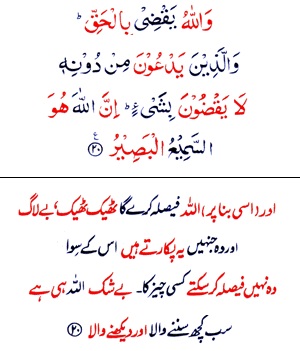 وَاللّٰهُ يَقْضِىْ بِالْحَقِّ ؕ
وَالَّذِيْنَ يَدْعُوْنَ مِنْ دُوْنِهٖ
لَا يَقْضُوْنَ بِشَىْءٍ ؕ اِنَّ اللّٰهَ هُوَ
السَّمِيْعُ الْبَصِيْرُ ﴿۲۰﴾ ع
اور (اسی بنا پر) اللہ فیصلہ کرے گا ٹھیک ٹھیک، بے لاگ
اور وہ جنہیں یہ پکارتے ہیں اس کے سوا
وہ نہیں فیصلہ کرسکتے کسی چیز کا۔ بے شک اللہ ہی ہے
سب کچھ سننے والا اور دیکھنے والا ﴿۲۰﴾